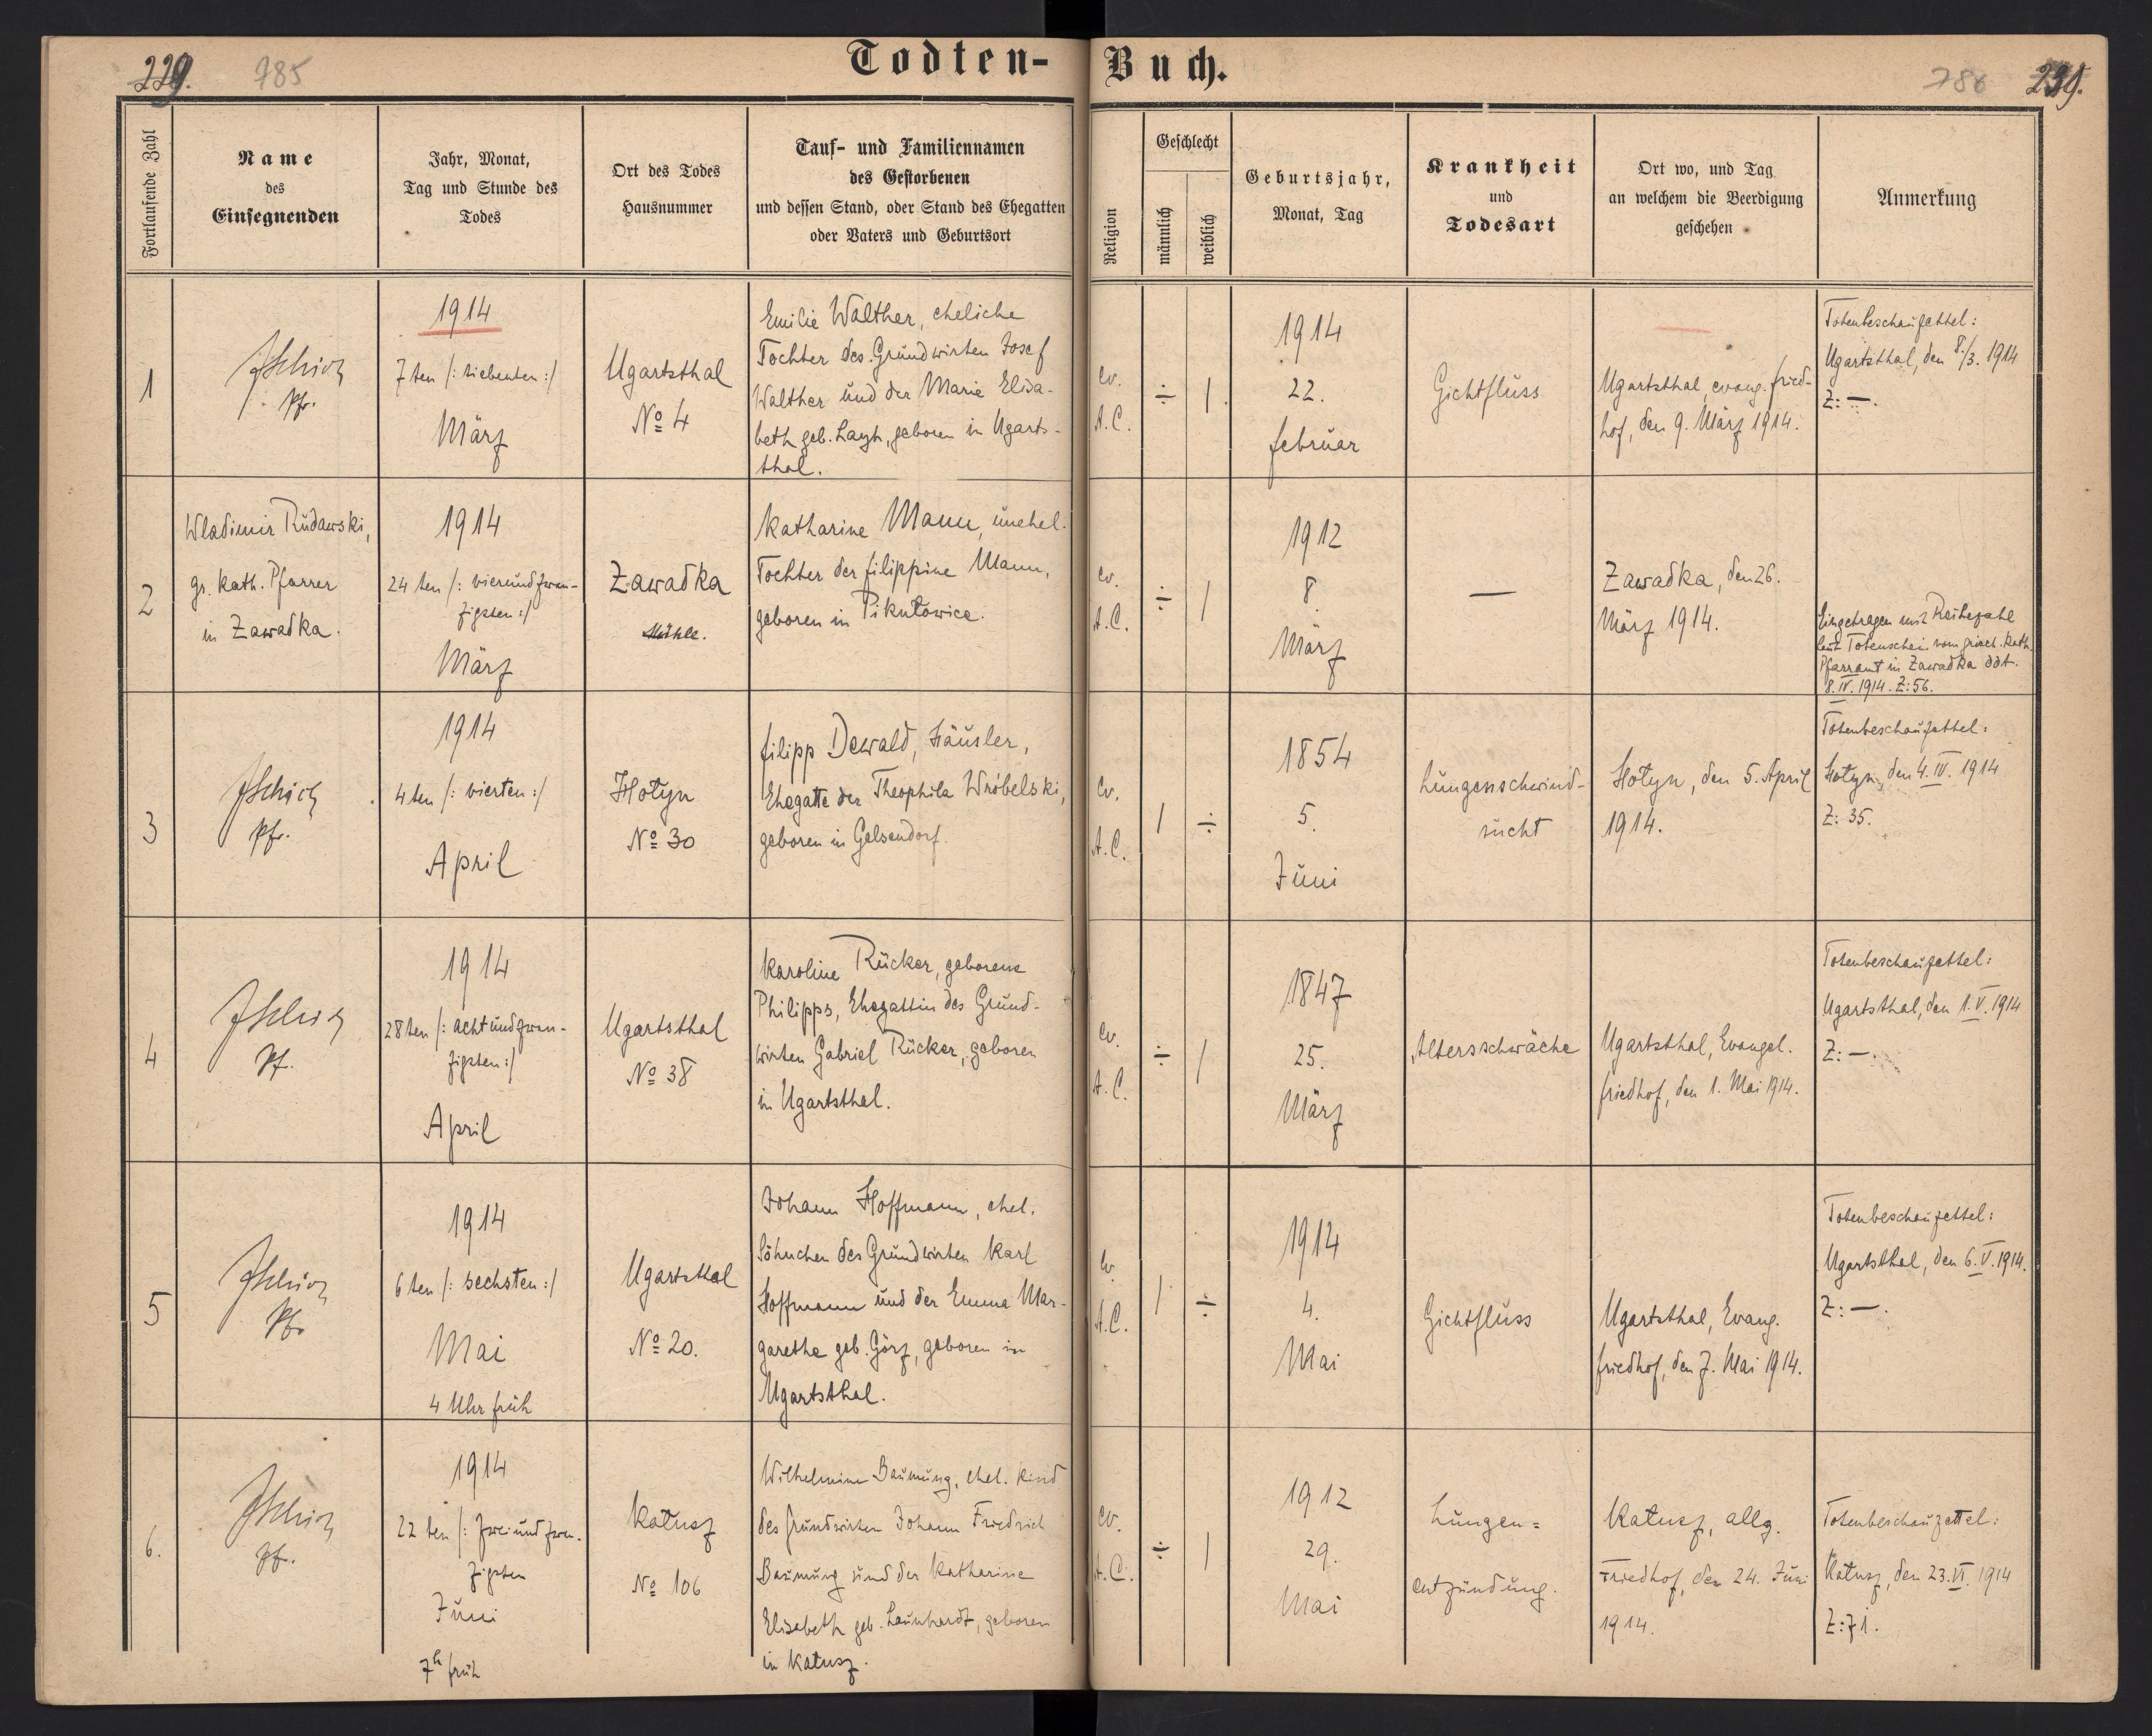 229. 785
Todten-Buch.
786 230.
Fortlaufende Zahl
Name
des
Einsegnenden
Jahr, Monat,
Tag und Stunde des
Todes
Ort des Todes
Hausnummer
Tauf- und Familiennamen
des Gestorbenen
und dessen Stand, oder Stand des Ehegatten
oder Vaters und Geburtsort
Religion
Geschlecht
männlich
weiblich
Geburtsjahr,
Monat, Tag
Krankheit
und
Todesart
Ort wo, und Tag
an welchem die Beerdigung
geschehen
Anmerkung
1
Pfr.
1914
7ten /: siebenten :/
März
Ugartsthal
No 4
Emilie Walther, eheliche
Tochter des Grundwirten Josef
Walther und der Marie Elisa-
beth geb. Layh, geboren in Ugarts-
thal.
ev.
A.C.
÷ /
1914
22.
februar
Gichtfluss
Ugartsthal, evang. fried-
hof, den 9. März 1914.
Totenbeschauzettel:
Ugartsthal, den 8./3. 1914
Z: —.
2
Wladimir Rudawski,
gr. kath. Pfarrer
in Zawadka.
1914
24ten /: vierundzwan-
zigsten :/
März
Zawadka
Mühle.
Katharine Mann, unehel.
Tochter der filippine Mann,
geboren in Pikulowice.
ev.
A.C.
÷ /
1912
8.
März
—
Zawadka, den 26.
März 1914.
Eingetragen mit Reihezahl
laut Totenschein vom griech. kath.
Pfarramt in Zawadka ddt.
8. IV. 1914. Z: 56.
3
Pfr.
1914
4ten /: vierten :/
April
Hołyn
No 30
filipp Dewald, Häusler,
Ehegatte der Theophila Wróbelski,
geboren in Gelsendorf.
ev.
A.C.
/ ÷
1854
5.
Juni
Lungenschwind-
sucht
Hołyn, den 5. April
1914.
Totenbeschauzettel:
Hołyn, den 4. IV. 1914
Z: 35.
4
Pf.
1914
28ten /: achtundzwan-
zigsten :/
April
Ugartsthal
No 38
Karoline Rücker, geborene
Philipps, Ehegattin des Grund-
wirten Gabriel Rücker, geboren
in Ugartsthal.
ev.
A.C.
÷ /
1847
25.
März
Altersschwäche
Ugartsthal, Evangel.
friedhof, den 1. Mai 1914.
Totenbeschauzettel:
Ugartsthal, den 1. V. 1914
Z: —.
5
Pfr
1914
6ten /: sechsten :/
Mai
4 Uhr früh
Ugartsthal
No 20.
Johann Hoffmann, ehel.
Söhnchen des Grundwirten Karl
Hoffmann und der Emma Mar-
garethe geb. Görz, geboren in
Ugartsthal.
ev.
A.C.
/ ÷
1914
4.
Mai
Gichtfluss
Ugartsthal, Evang.
friedhof, den 7. Mai 1914.
Totenbeschauzettel:
Ugartsthal, den 6. V. 1914.
Z: —.
6.
Pf.
1914
22ten /: zweiundzwan-
zigsten
Juni
7h früh
Kałusz
No 106
Wilhelmine Baumung, ehel. Kind
des Grundwirten Johann Friedrich
Baumung und der Katharine
Elisabeth geb. Launhardt, geboren
in Kałusz.
ev.
A.C.
÷ /
1912
29.
Mai
Lungen=
entzündung.
Kałusz, allg.
Friedhof, den 24. Juni
1914.
Totenbeschauzettel:
Kałusz, den 23. VI. 1914
Z: 71.